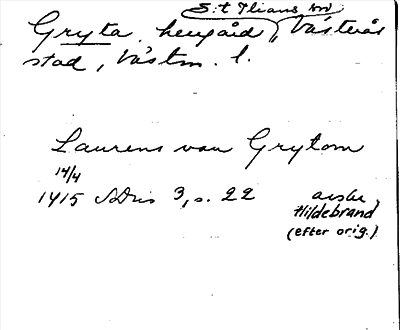 S:t Ilians sn
Gryta, herrgård, Västerås
stad, Västm. l.
Laurens van Grytom
14/4
1415 SDns 3, s. 22 avskr.
Hildebrand
(efter orig.)